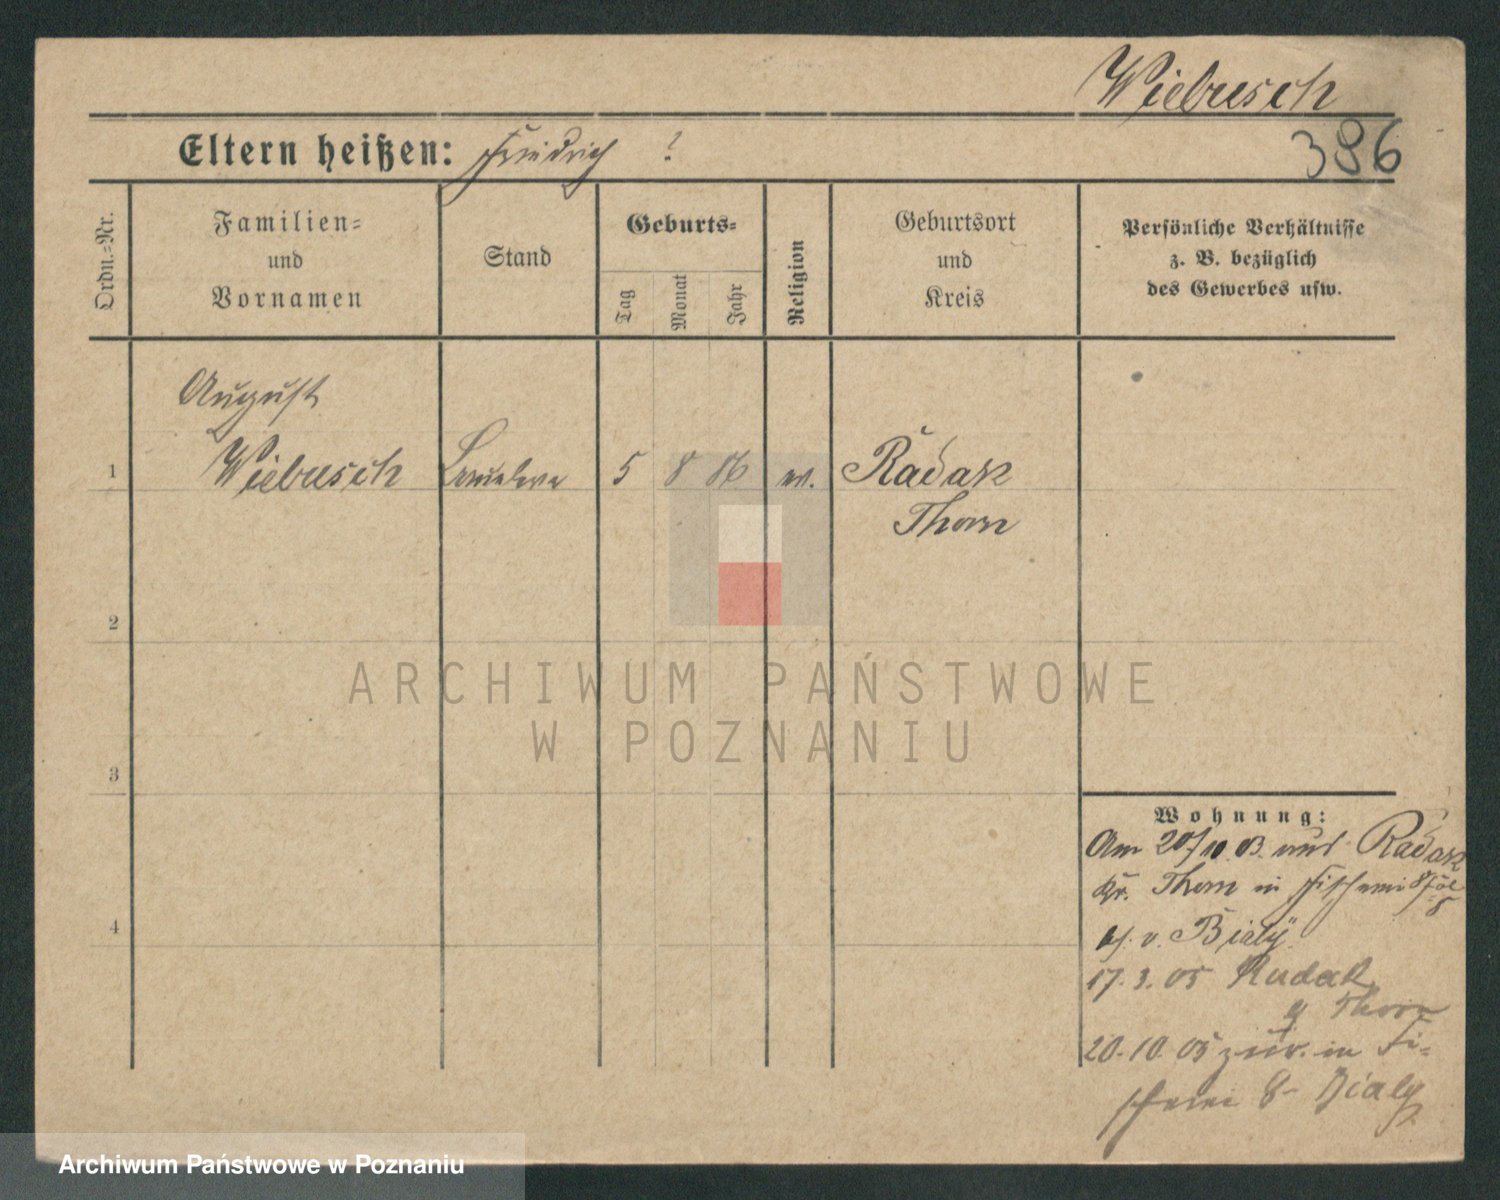 Wiebusch
386
Eltern heißen: Friedrich ?
Ordn.-Nr.
Familien-
und
Vornamen
Stand
Geburts-
Tag
Monat
Jahr
Religion
Geburtsort
und
Kreis
Persönliche Verhältnisse
z. B. bezüglich
des Gewerbes usw.
August
1 Wiebusch 5 8 86 ev. Radak
Thorn
2
3
4
ARCHIWUM PAŃSTWOWE
W POZNANIU
Wohnung:
Am 20/10 03. aus Radak
Kr. Thorn in Fischerei 8
b/. v. Bialÿ.
17. 3. 05 Rudak
Thorn
20. 10. 05 zur. in Fi-
scherei 8- Bialy
Archiwum Państwowe w Poznaniu